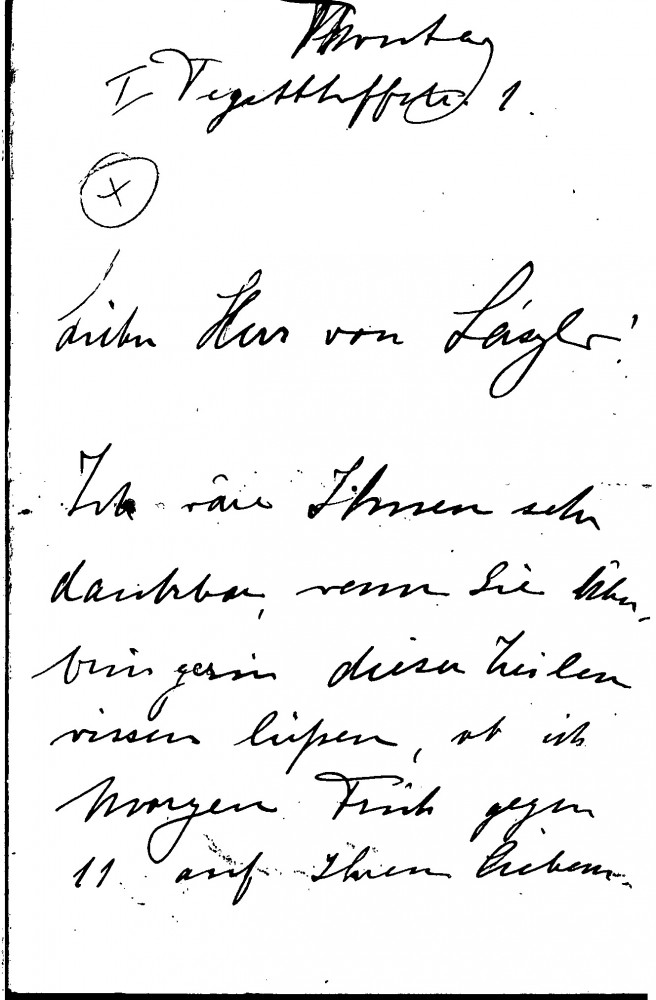 Montag
I Tegetthoffstr. 1.
Lieber Herr von László!
Ich wäre Ihnen sehr
dankbar, wenn Sie Über-
bringerin dieser Zeilen
wissen ließen, ob ich
Morgen Früh gegen
11 auf Ihren lieben